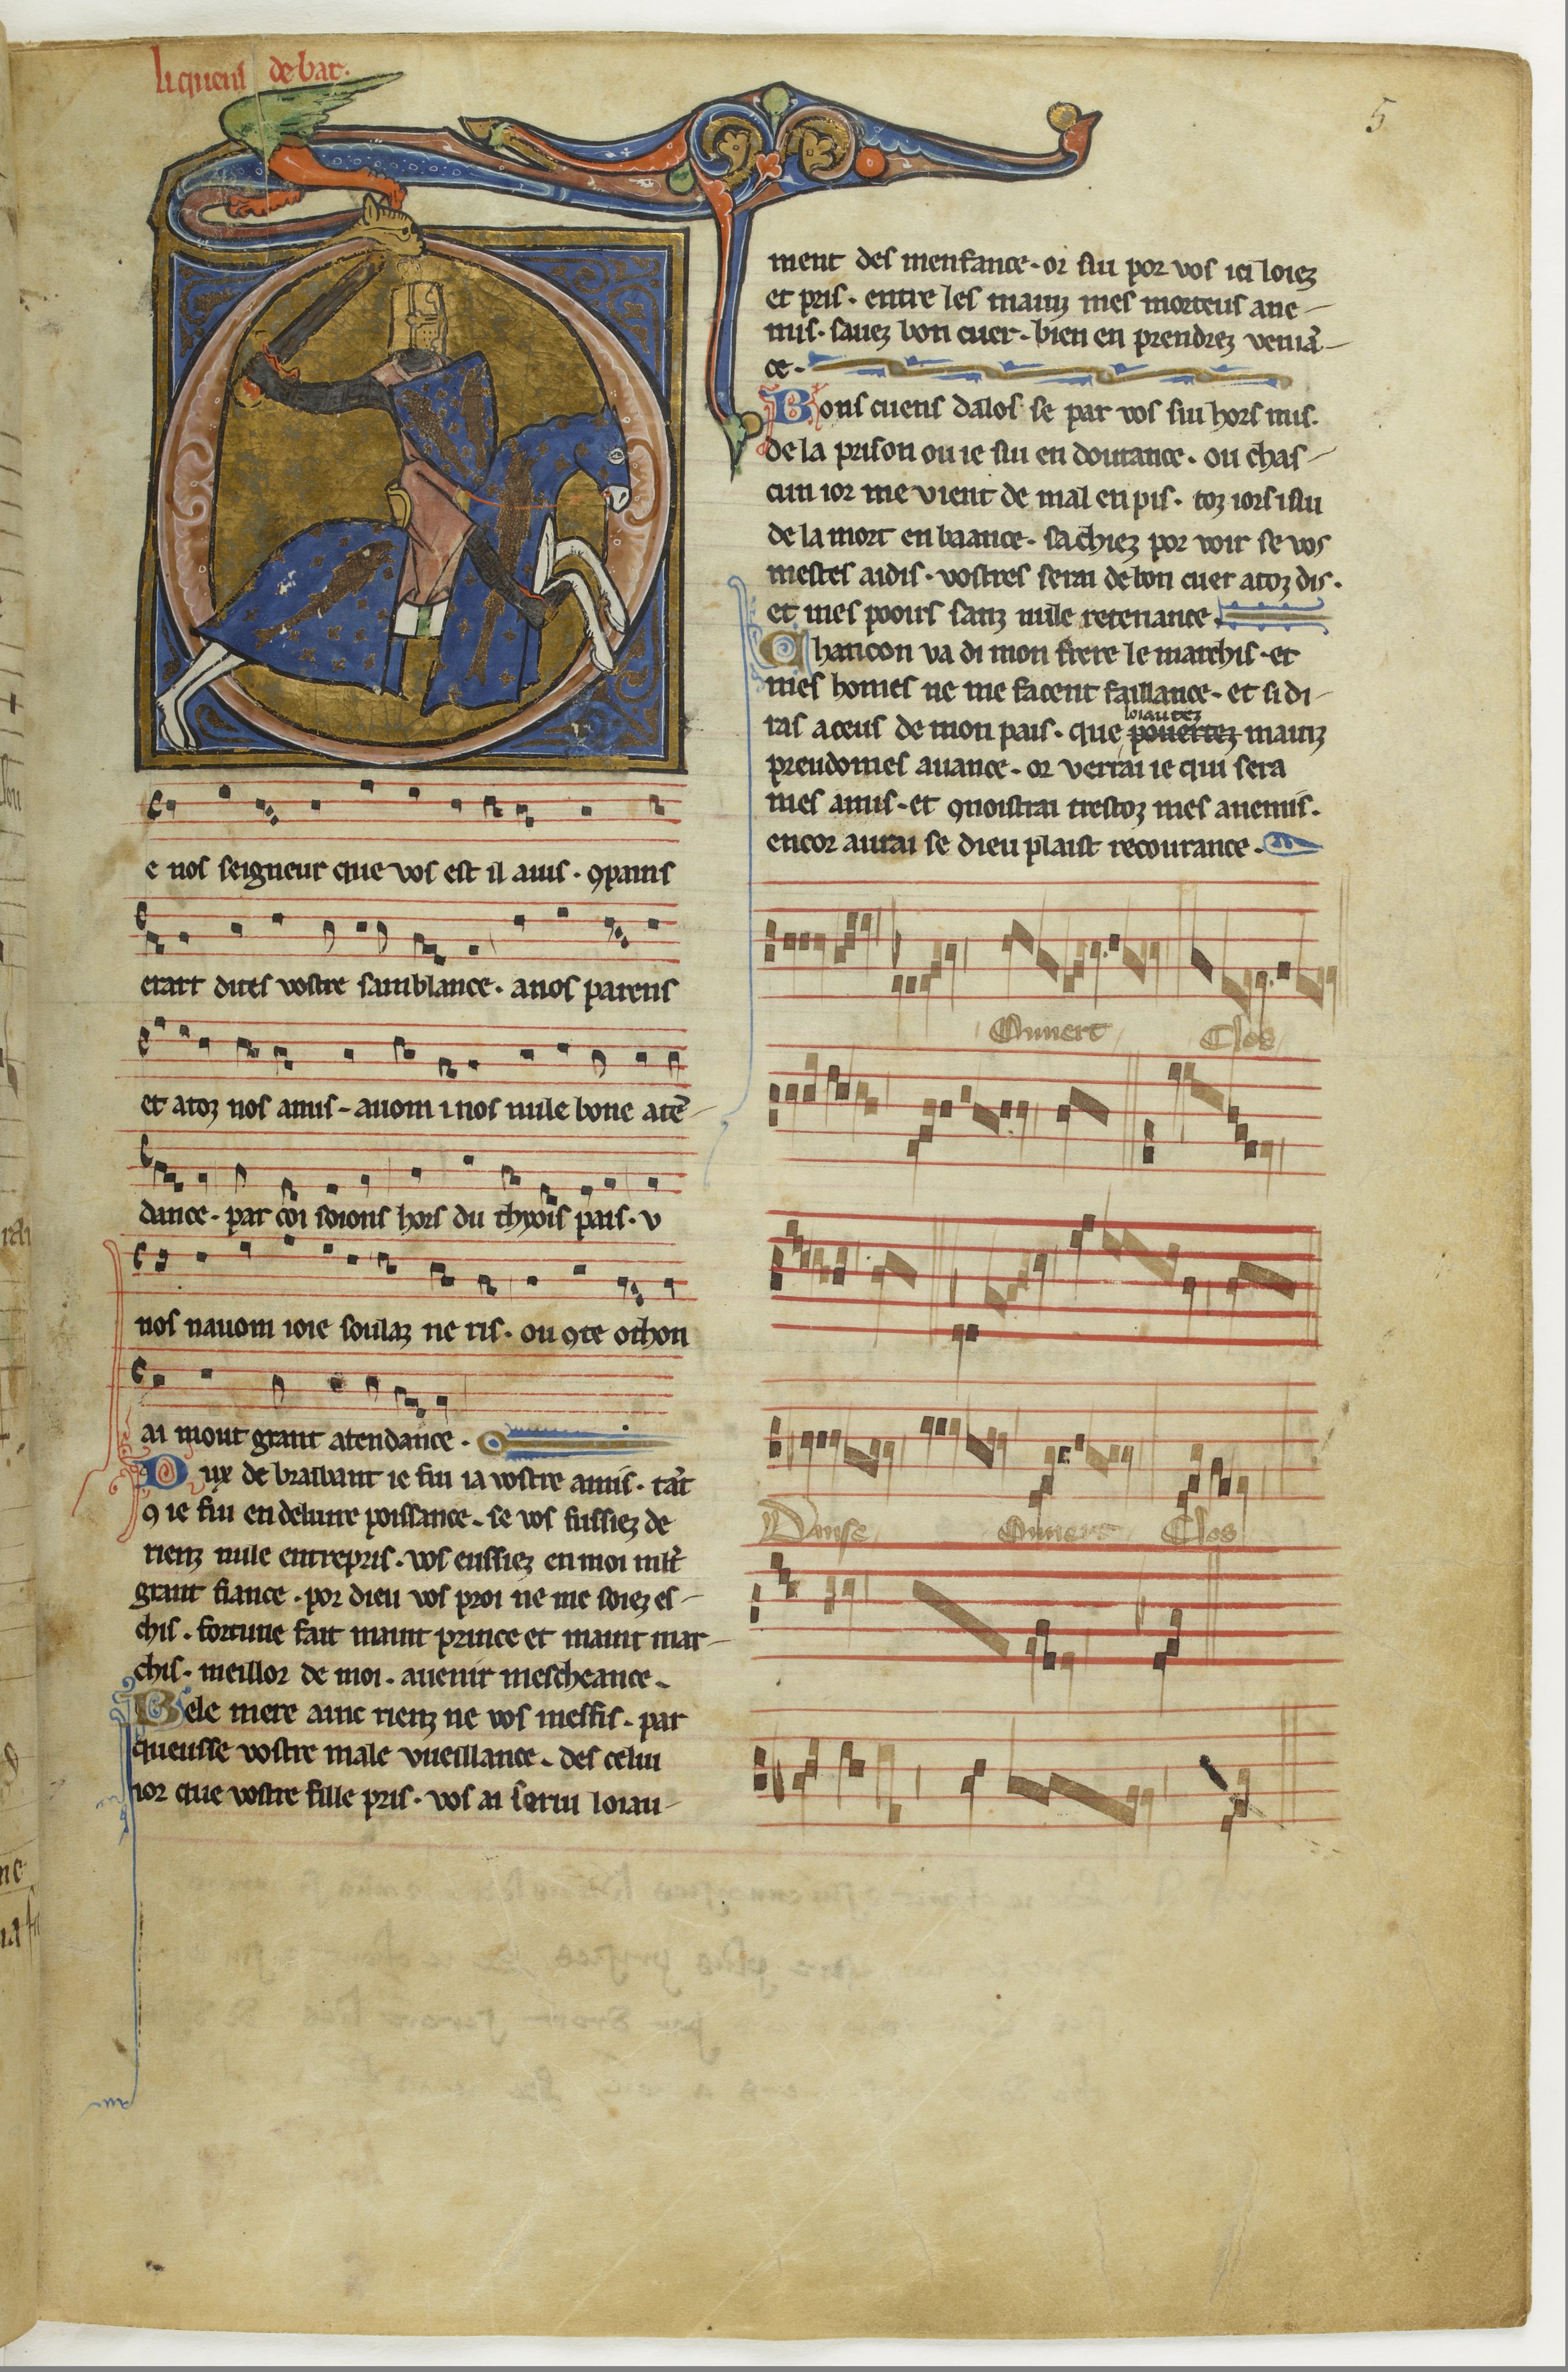 li quens de bar.
5
e nos seigneur que vos est il auis. 9pains
erart dites vostre samblance. a nos parens
et a toz nos amis. auom i nos nule bone atē
dance. par coi soions hors du thyois pais. v
nos nauom ioie soulaz ne ris. ou 9te othon
ai mout grant atendance.
Dux de braibant ie fui ia vostre amis. tāt
9 ie fui en deliure poissance. se vos fussiez de
rienz nule entrepris. vos eussiez en moi mlt
grant fiance. por dieu vos proi ne me soiez es
chis. fortune fait maint prince et maint mar
chis. meillor de moi. auenir mescheance.
Bele mere ainc rienz ne vos meffis. par
queusse vostre male vueillance. des celui
ior que vostre fille pris. vos ai serui loiau
ment des menfance. or sui por vos ici loiez
et pris. entre les mainz mes morteus ane
mis. sauez bon cuer. bien en prendrez venia
ce.
Bons cuens dalos se par vos sui hors mis.
de la prison ou ie sui en doutance. ou chas
cun ior me vient de mal en pis. toz iors i sui
de la mort en baance. sachiez por voir se vos
mestes aidis. vostres serai de bon cuer a toz dis.
et mes pooirs sanz nule retenance.
Chancon va di mon frere le marchis. et
mes homes ne me facent faillance. et si di
ras a ceus de mon pais. que pouertez mainz
loiautez
preudomes auance. or verrai ie qui sera
mes amis. et 9noistrai trestoz mes anemis.
encor aurai se dieu plaist recourance.
Ouuert Clos
Danse Ouuert Clos